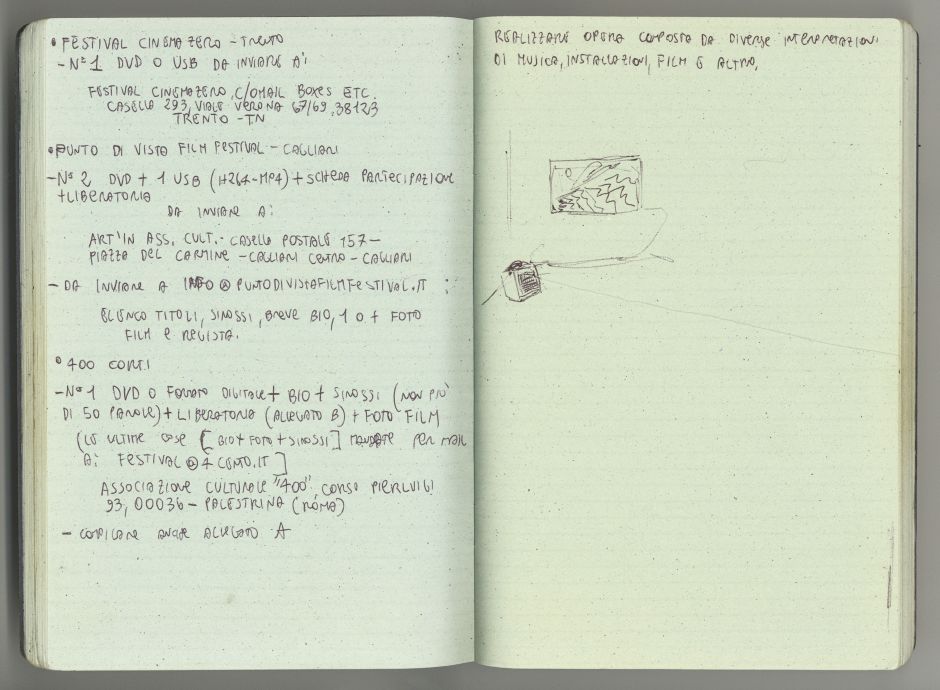 • FESTIVAL CINEMAZERO - TRENTO
- N° 1 DVD O USB DA INVIARE A:
FESTIVAL CINEMAZERO, C/O MAIL BOXES ETC.
CASELLA 293, VIALE VERONA 67/69, 38123
TRENTO - TN
• PUNTO DI VISTA FILM FESTIVAL - CAGLIARI
- N° 2 DVD + 1 USB (H264-MP4) + SCHEDA PARTECIPAZIONE
+ LIBERATORIA
DA INVIARE A:
ART'IN ASS. CULT. - CASELLA POSTALE 157 -
PIAZZA DEL CARMINE - CAGLIARI CENTRO - CAGLIARI
- DA INVIARE A INFO@PUNTODIVISTAFILMFESTIVAL.IT :
ELENCO TITOLI, SINOSSI, BREVE BIO, 1 O + FOTO
FILM E REGISTA.
• 400 CORTI
- N° 1 DVD O FORMATO DIGITALE + BIO + SINOSSI (NON PIÙ
DI 50 PAROLE) + LIBERATORIA (ALLEGATO B) + FOTO FILM
(LE ULTIME COSE [BIO + FOTO + SINOSSI] MANDATE PER MAIL
A: FESTIVAL@4CENTO.IT]
ASSOCIAZIONE CULTURALE "400", CORSO PIERLUIGI
93, 00036 - PALESTRINA (ROMA)
- COMPILARE ANCHE ALLEGATO A
REALIZZARE OPERA COMPOSTA DA DIVERSE INTERPRETAZIONI
DI MUSICA, INSTALLAZIONI, FILM E ALTRO,